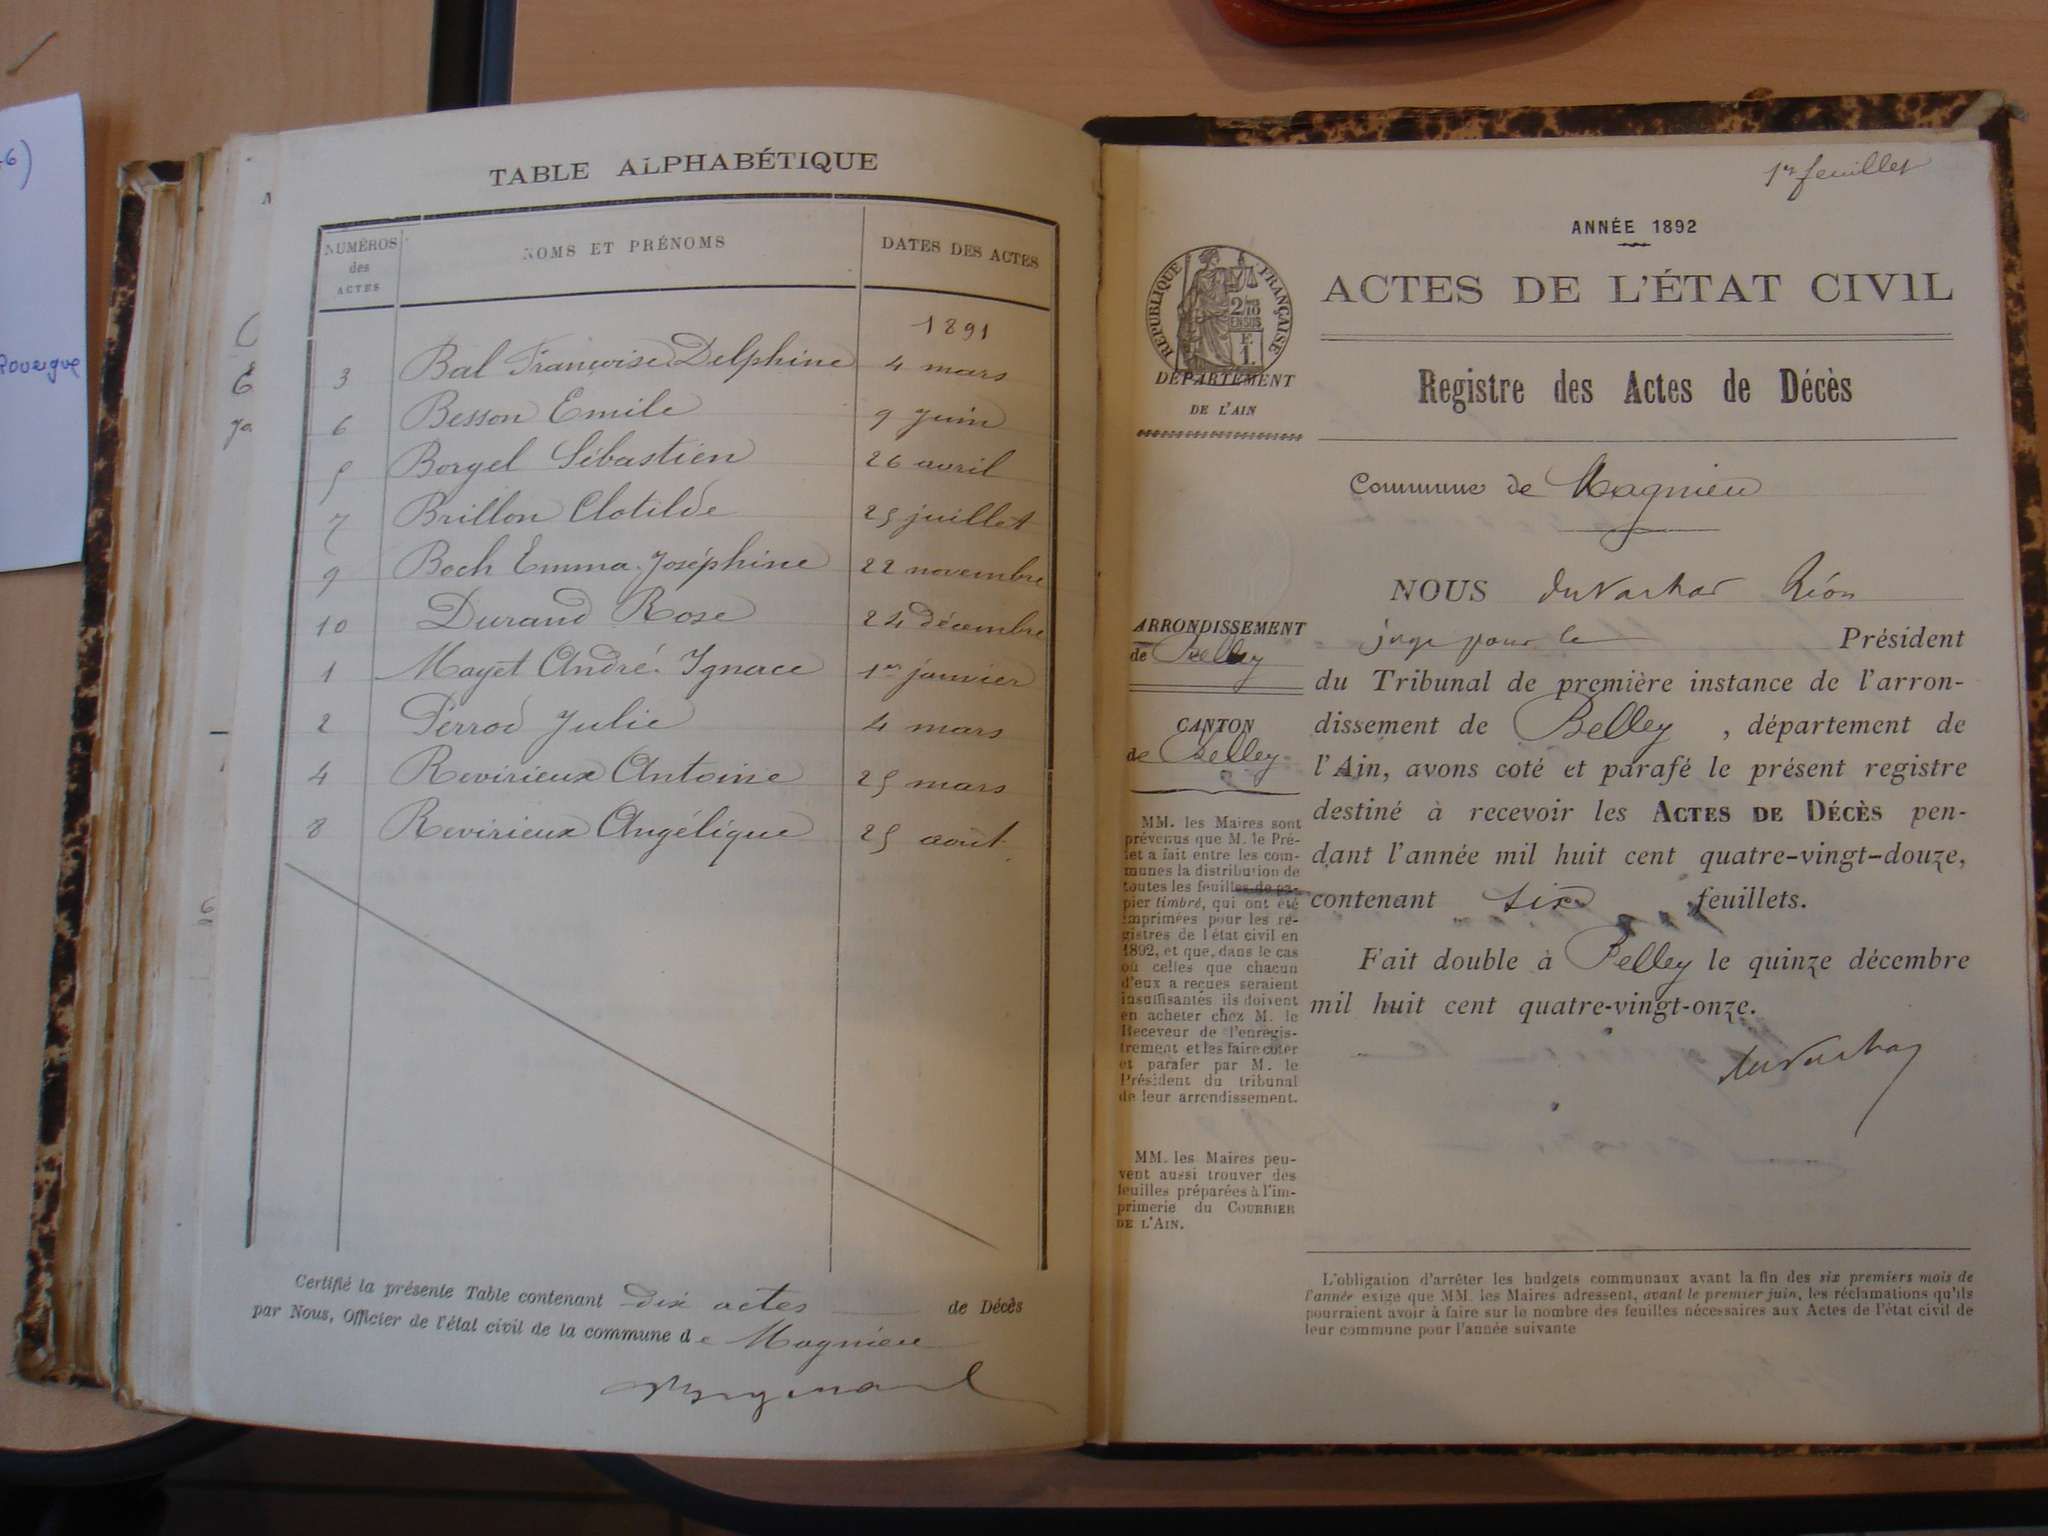 6)
Rouergue
TABLE ALPHABÉTIQUE
NUMÉROS des ACTES
NOMS ET PRÉNOMS
DATES DES ACTES
1891
3 Bal Françoise Delphine 4 mars
6 Besson Emile 9 Juin
5 Borgel Sébastien 26 avril
7 Brillon Clotilde 25 juillet
9 Boch Emma Joséphine 22 novembre
10 Durand Rose 24 décembre
1 Mayet André Ignace 1er janvier
2 Perrod Julie 4 mars
4 Revirieux Antoine 25 mars
8 Revirieux Angélique 25 août
Certifié la présente Table contenant dix actes de Décès
par Nous, Officier de l'état civil de la commune de Magnieu
1er feuillet
ANNÉE 1892
RÉPUBLIQUE FRANÇAISE
2/10
EN SUS
F.
1.
ACTES DE L'ÉTAT CIVIL
DÉPARTEMENT
DE L'AIN
Registre des Actes de Décès
Commune de Magnieu
NOUS Léon
ARRONDISSEMENT
de Belley
CANTON
de Belley
juge pour le Président
du Tribunal de première instance de l'arron-
dissement de Belley, département de
l'Ain, avons coté et parafé le présent registre
destiné à recevoir les ACTES DE DÉCÈS pen-
dant l'année mil huit cent quatre-vingt-douze,
contenant six feuillets.
Fait double à Belley le quinze décembre
mil huit cent quatre-vingt-onze.
MM. les Maires sont
prévenus que M. le Pré-
fet a fait entre les com-
munes la distribution de
toutes les feuilles de pa-
pier timbré, qui ont été
imprimées pour les re-
gistres de l'état civil en
1892, et que, dans le cas
où celles que chacun
d'eux a reçues seraient
insuffisantes ils doivent
en acheter chez M. le
Receveur de l'enregis-
trement et les faire coter
et parafer par M. le
Président du tribunal
de leur arrondissement.
MM. les Maires peu-
vent aussi trouver des
feuilles préparées à l'im-
primerie du COURRIER
DE L'AIN.
L'obligation d'arrêter les budgets communaux avant la fin des six premiers mois de
l'année exige que MM. les Maires adressent, avant le premier juin, les réclamations qu'ils
pourraient avoir à faire sur le nombre des feuilles nécessaires aux Actes de l'état civil de
leur commune pour l'année suivante